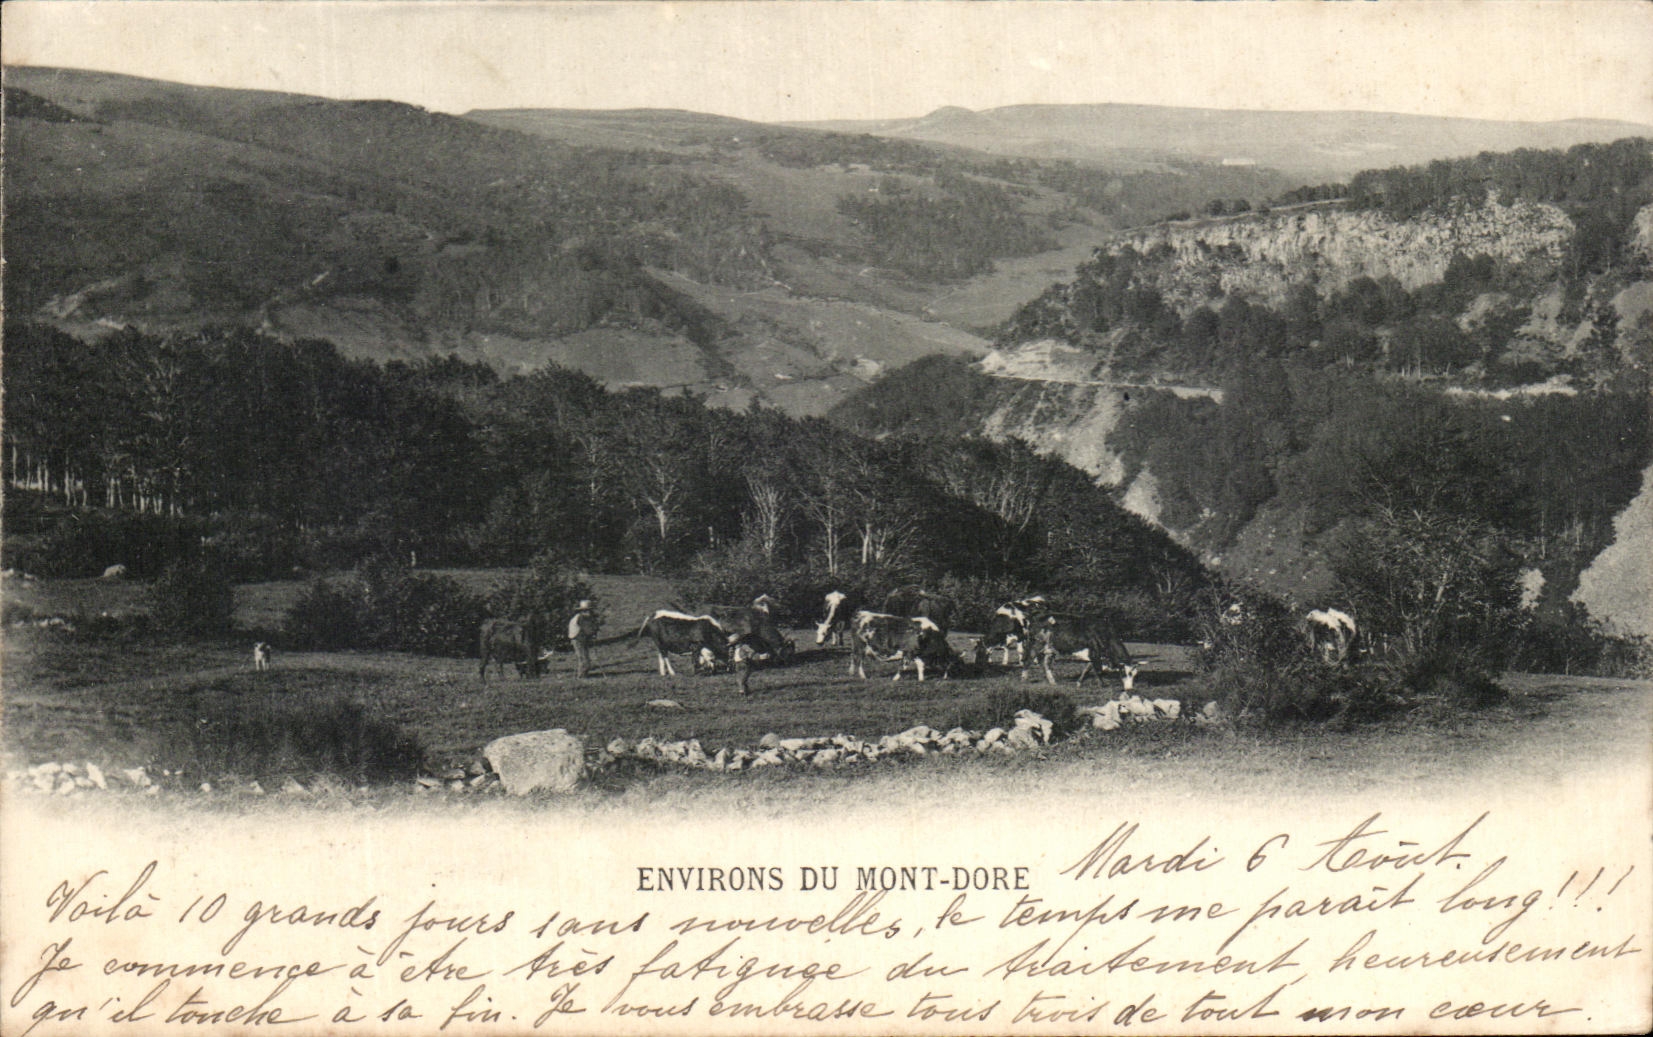 ENVIRONS DU MONT-DORE
Mardi 6 Août.
Voilà 10 grands jours sans nouvelles, le temps me parait long!!!
Je commence à être très fatiguée du traitement, heureusement
qu'il touche à sa fin. Je vous embrasse tous trois de tout mon cœur.